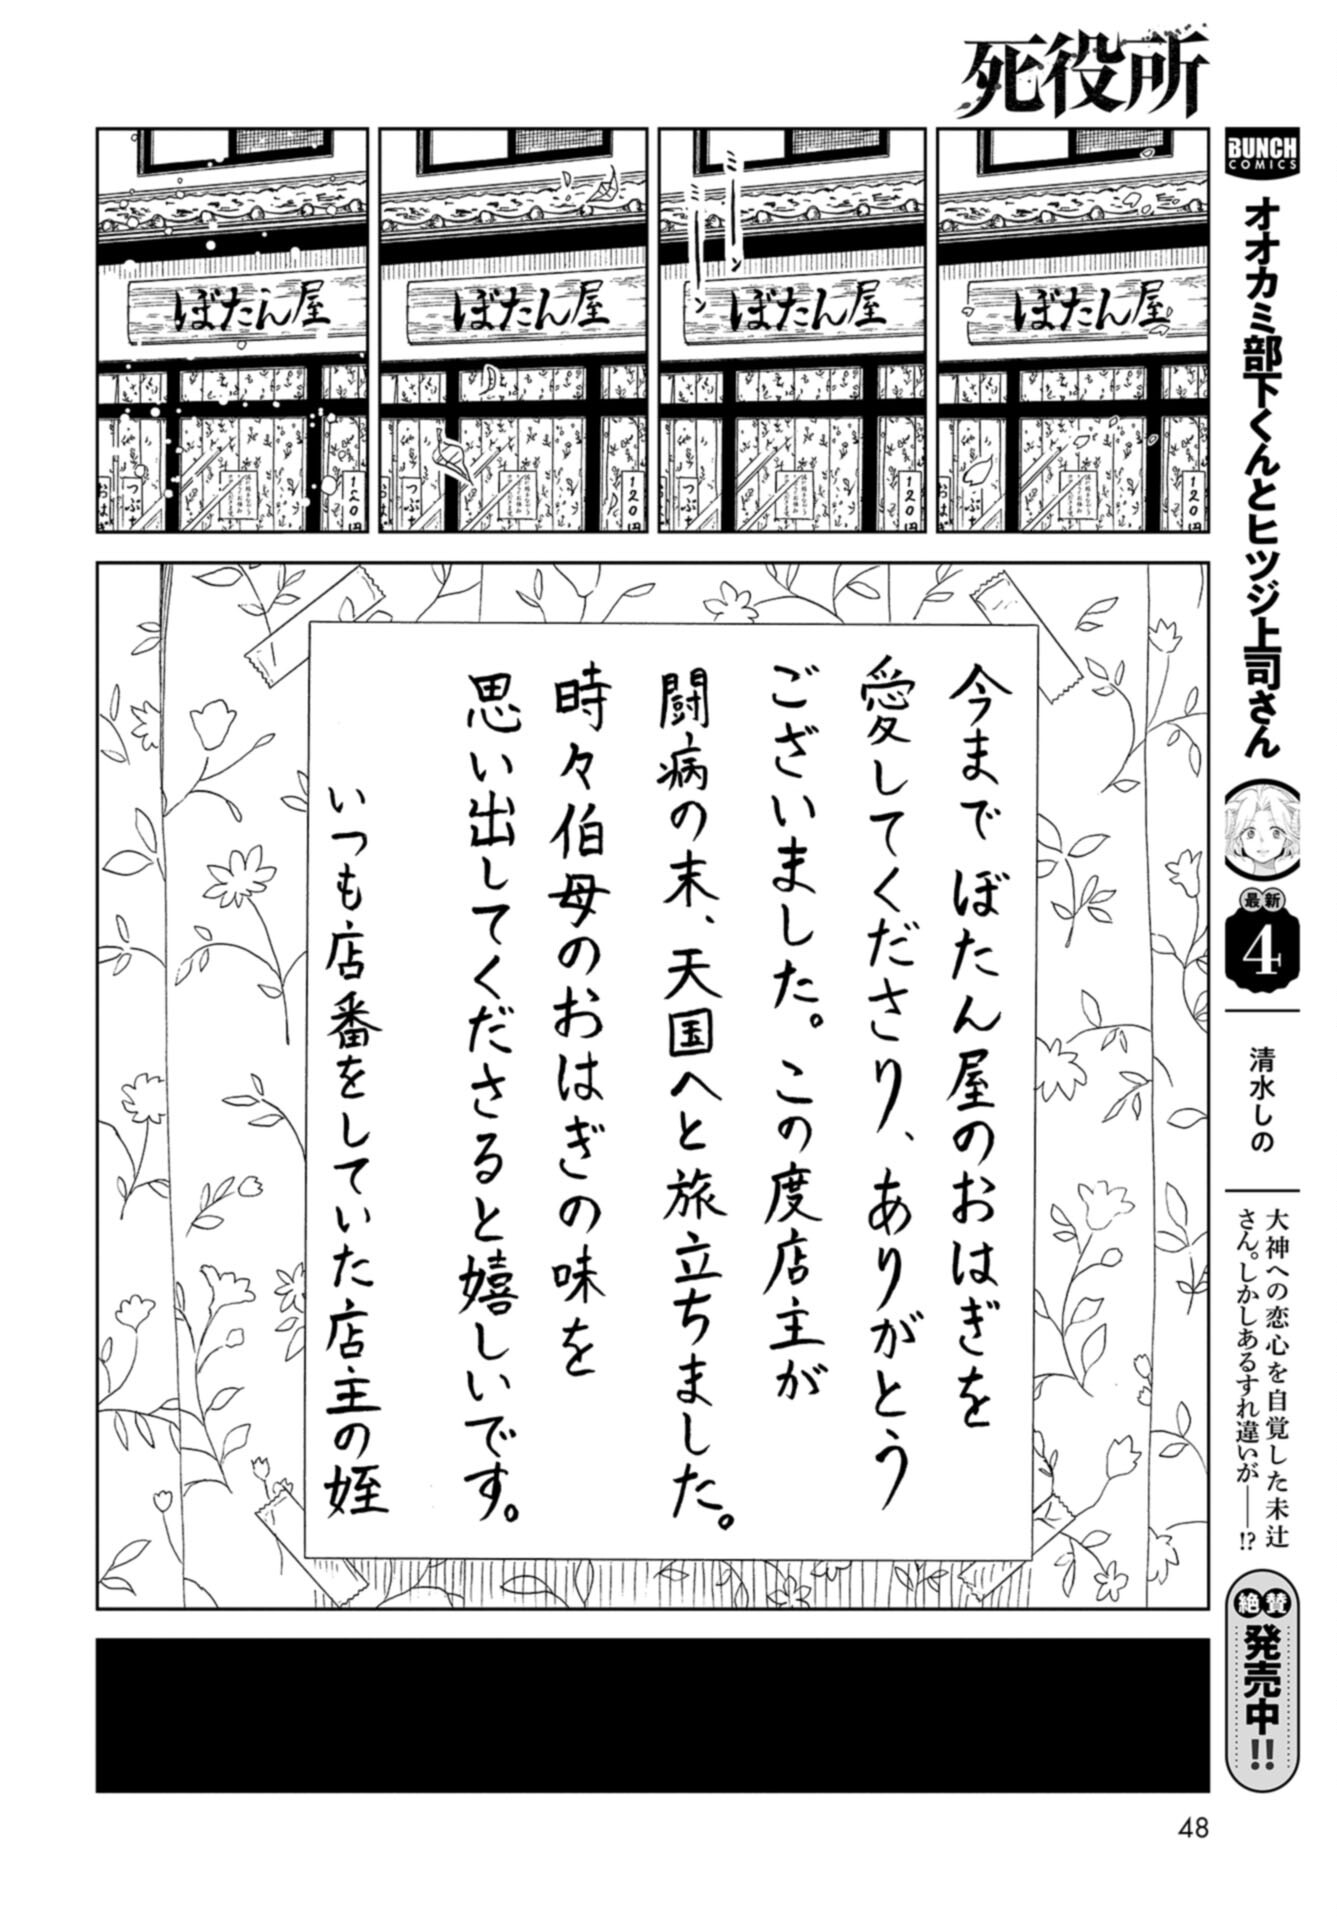 死役所
BUNCH
COMICS
オオカミ部下くんとヒツジ上司さん
最新
4
清水しの
大神への恋心を自覚した未辻
さん。しかしあるすれ違いが——!?
絶賛
発売中!!
ぼたん屋
120円
おはぎ
つぶあ
ミーン
ミーン
ぼたん屋
120円
つぶ
ぼたん屋
120円
おはぎ
つぶ
ぼたん屋
120円
おはぎ
つぶ
今までぼたん屋のおはぎを
愛してくださり、ありがとう
ございました。この度店主が
闘病の末、天国へと旅立ちました。
時々伯母のおはぎの味を
思い出してくださると嬉しいです。
いつも店番をしていた店主の姪
48